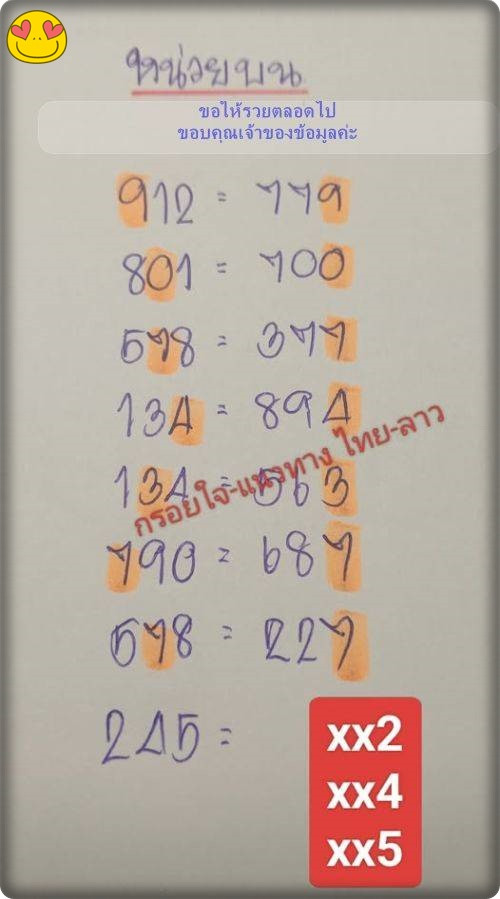 หน่วยบน
ขอให้รวยตลอดไป
ขอบคุณเจ้าของข้อมูลค่ะ
912 = 779
801 = 700
578 = 377
134 = 894
134 = 563
กรอยใจ-แนวทาง ไทย-ลาว
790 = 687
578 = 227
245 =
xx2
xx4
xx5